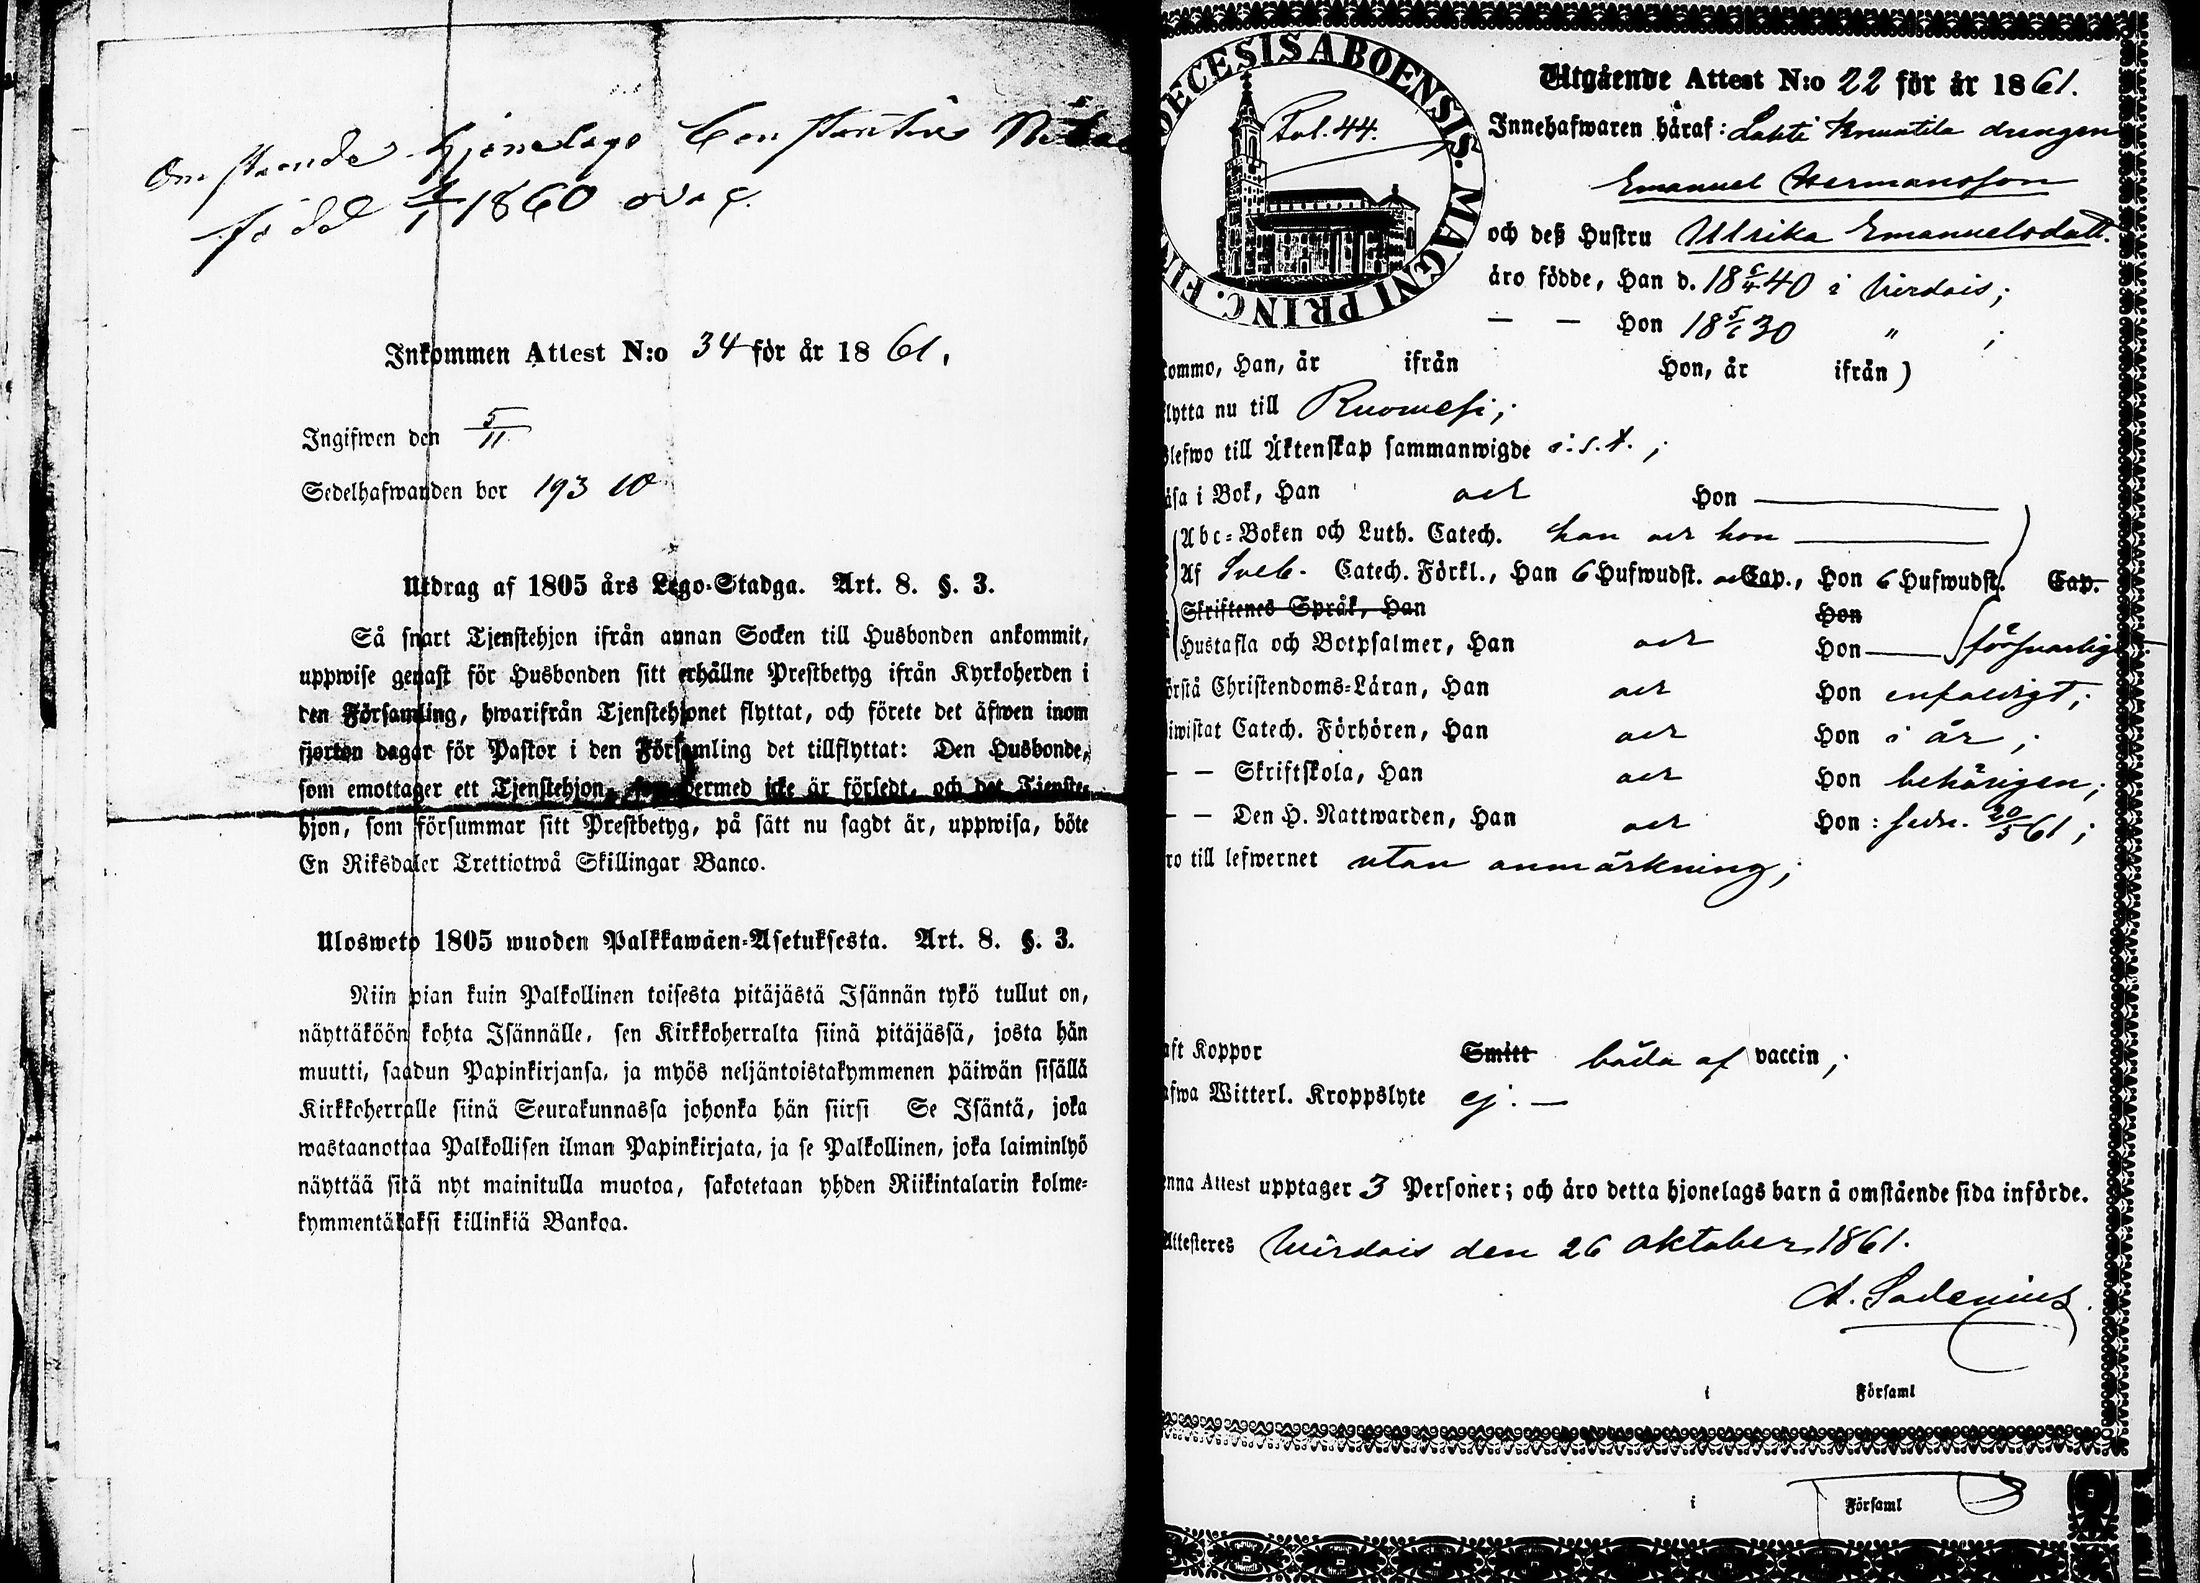 Omstående hjonelags Constantius
född 4/1 1860 ovac.
Inkommen Attest N:o 34 för år 1861.
Ingifwen den 5/11
Sedelhafwanden bor 193 10
Utdrag af 1805 års Lego-Stadga. Art. 8. §. 3.
Så snart Tjenstehjon ifrån annan Socken till Husbonden ankommit,
uppwise genast för Husbonden sitt erhållne Prestbetyg ifrån Kyrkoherden i
den Församling, hwarifrån Tjenstehjonet flyttat, och förete det äfwen inom
fjorton dagar för Pastor i den Församling det tillflyttat: Den Husbonde,
som emottager ett Tjenstehjon, som dermed icke är försedt, och det Tjenste-
hjon, som försummar sitt Prestbetyg, på sätt nu sagdt är, uppwisa, böte
En Riksdaler Trettiotwå Skillingar Banco.
Ulosweto 1805 wuoden Palkkawäen-Asetuksesta. Art. 8. §. 3.
Niin pian kuin Palkollinen toisesta pitäjästä Isännän tykö tullut on,
näyttäköön kohta Isännälle, sen Kirkkoherralta siinä pitäjässä, josta hän
muutti, saadun Papinkirjansa, ja myös neljäntoistakymmenen päiwän sisällä
Kirkkoherralle siinä Seurakunnassa johonka hän siirsi Se Isäntä, joka
wastaanottaa Palkollisen ilman Papinkirjata, ja se Palkollinen, joka laiminlyö
näyttää sitä nyt mainitulla muotoa, sakotetaan yhden Riikintalarin kolme-
kymmentäkaksi killinkiä Bankoa.
DECESIS ABOENSIS. MAGNI PRINC. FIN
Fol. 44.
Utgående Attest N:o 22 för år 1861.
Innehafwaren häraf: Lahti Knuutila drängen
Emanuel Hermansson
och deß Hustru Ulrika Emanuelsdott.
äro födde, Han d. 18 6/4 40 i Virdois;
— — Hon 18 5/6 30 " ;
kommo, Han, år ifrån Hon, år ifrån )
flytta nu till Ruowesi;
Blefwo till Äktenskap sammanwigde
läsa i Bok, Han och Hon
Abc-Boken och Luth. Catech. han och hon
Af Sveb. Catech. Förkl., Han 6 Hufwudst. och Cap., Hon 6 Hufwudst. Cap.
Skriftenes Språk, Han Hon
Hustafla och Botpsalmer, Han och Hon försvarligt
förstå Christendoms-Läran, Han och Hon enfaldigt;
biwistat Catech. Förhören, Han och Hon i år;
— — Skriftskola, Han och Hon behörigen;
— — Den H. Nattwarden, Han och Hon: sedn. 20/5 61;
äro till lefwernet utan anmärkning;
haft Koppor Smitt båda af vaccin;
hafwa Witterl. Kroppslyte ej. —
Denna Attest upptager 3 Personer; och äro detta hjonelags barn å omstående sida införde.
Attesteres Virdois den 26 oktober 1861.
A. Sadenius.
i Församl
i Församl